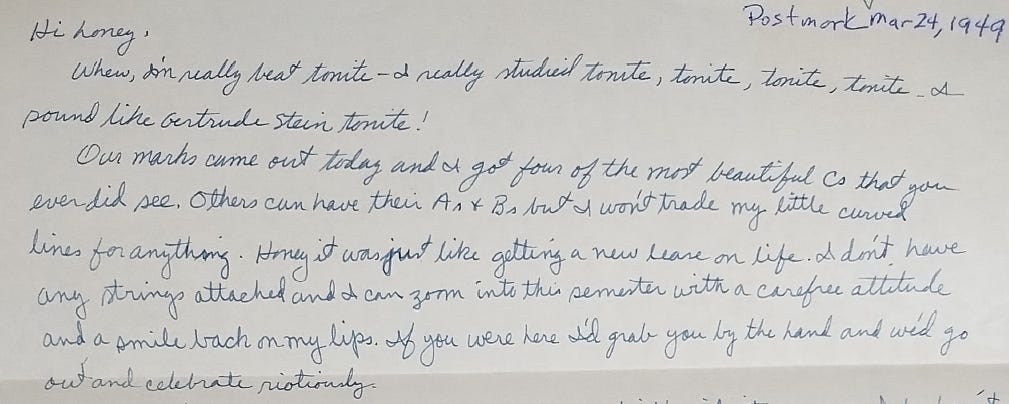 Postmark Mar 24, 1949
Hi honey,
Whew, I'm really beat tonite - I really studied tonite, tonite, tonite, tonite - I
sound like Gertrude Stein tonite!
Our marks came out today and I got four of the most beautiful Cs that you
ever did see. Others can have their As & Bs but I won't trade my little curved
lines for anything. Honey it was just like getting a new lease on life. I don't have
any strings attached and I can zoom into this semester with a carefree attitude
and a smile back on my lips. If you were here I'd grab you by the hand and we'd go
out and celebrate riotiously.